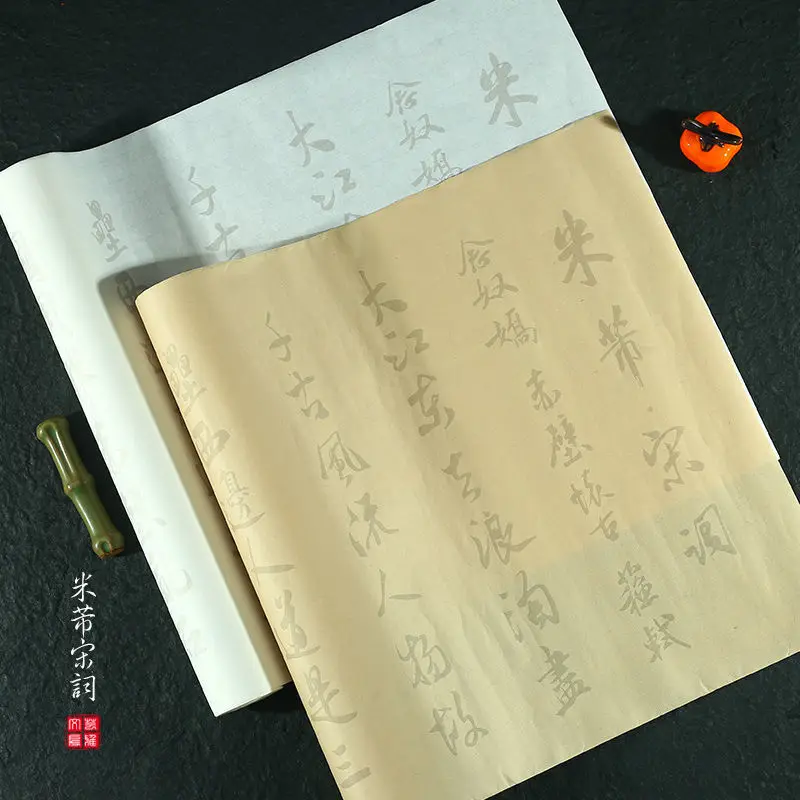 米
念奴嬌
大江
千古
壘西
米芾宋詞
念奴嬌 赤壁懷古 蘇軾
大江東去浪淘盡
千古風流人物故
壘西邊人道是三
米芾宋詞